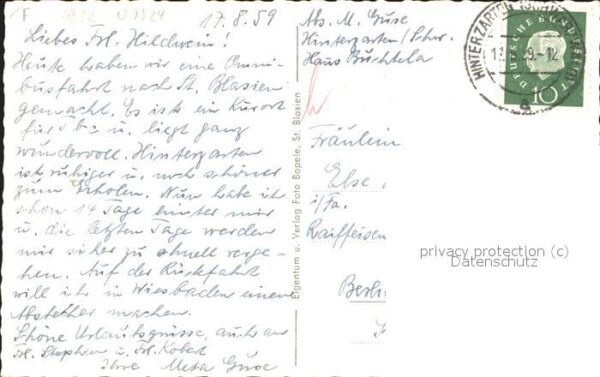 17.8.59
Liebes Frl. Hildwein!
Heute haben wir eine Omni-
busfahrt nach St. Blasien
gemacht. Es ist ein Kurort
für Tbc u. liegt ganz
wundervoll. Hinterzarten
ist ruhiger u. noch schöner
zum Erholen. Nun habe ich
schon 14 Tage hinter mir
u. die letzten Tage werden
mir sicher zu schnell verge-
hen. Auf der Rückfahrt
will ich in Wiesbaden einen
Abstecher machen.
Schöne Urlaubsgrüsse, auch an
Frl. Stephan u. Frl. Kobelt
Ihre Meta Guse
Abs. M. Guse
Hinterzarten / Schw.
Haus Buchtela
Eigentum u. Verlag Foto Bopele, St. Blasien
Fräulein
Else
i/Fa.
Raiffeisen
Berlin
HINTERZARTEN
a
DEUTSCHE BUNDESPOST
10
privacy protection (c)
Datenschutz